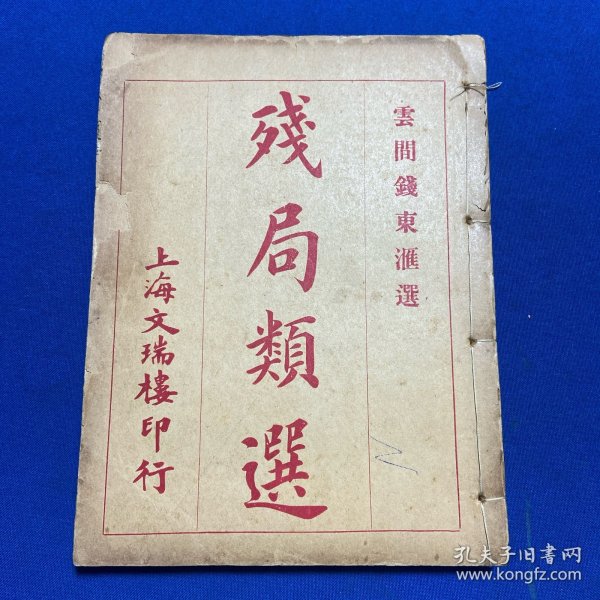 雲間錢東滙選
殘局類選
上海文瑞樓印行
孔夫子旧書网
www.kongfz.com